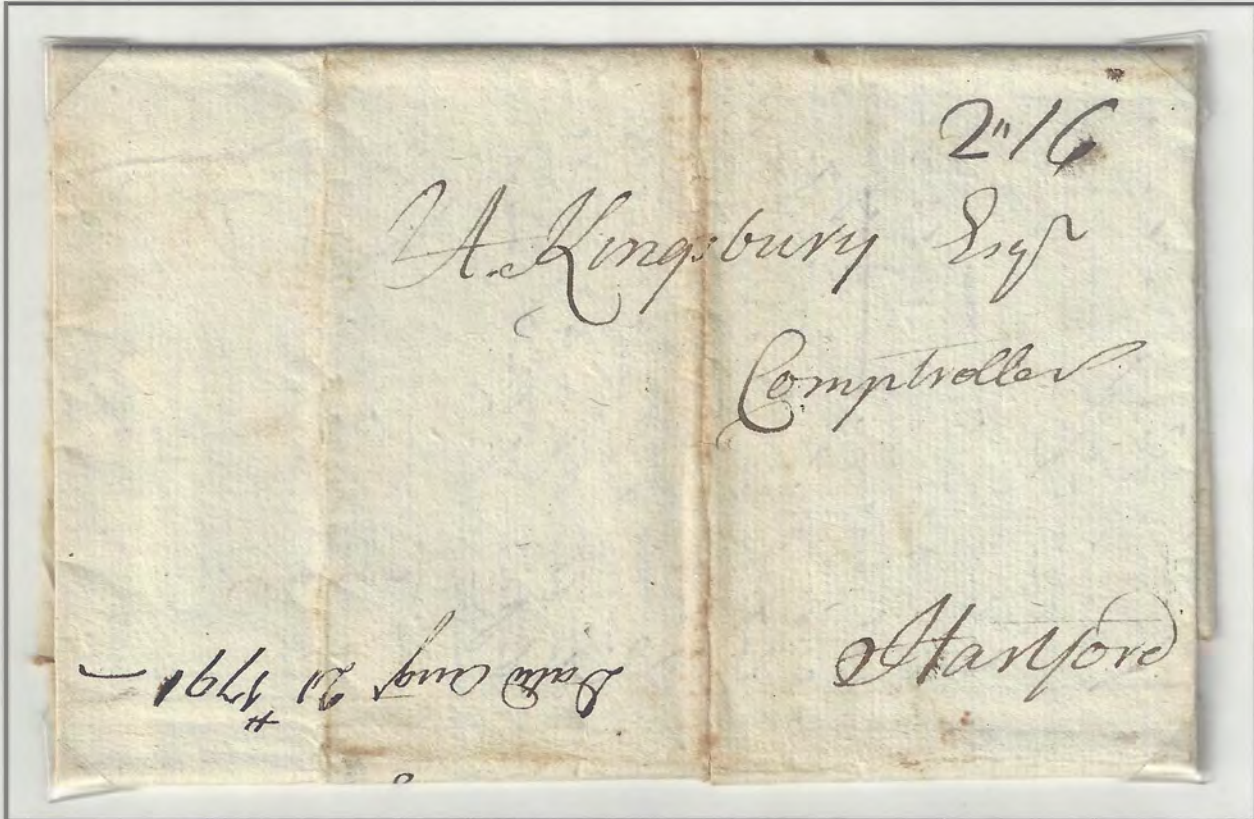 2"16
A. Kingsbury Esqr
Comptroller
Hartford
Dated Augt 21 1791